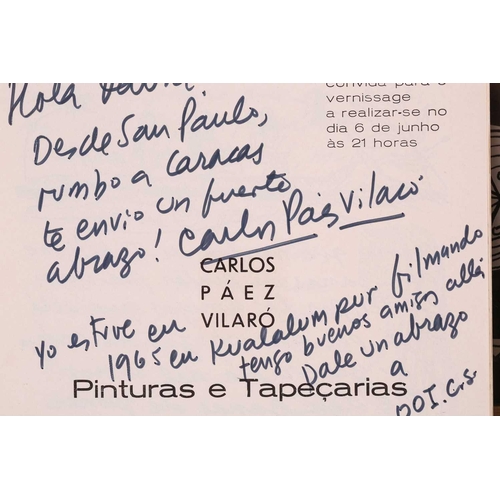 Hola
convida para o
vernissage
a realizar-se no
dia 6 de junho
às 21 horas
Desde San Paulo,
rumbo a Caracas
te envio un fuerte
abrazo! Carlos Páez Vilaró
CARLOS
PÁEZ
VILARÓ
yo estuve en
1965 en Kualalumpur filmando
tengo buenos amigos allá
Dale un abrazo
a
Pinturas e Tapeçarias